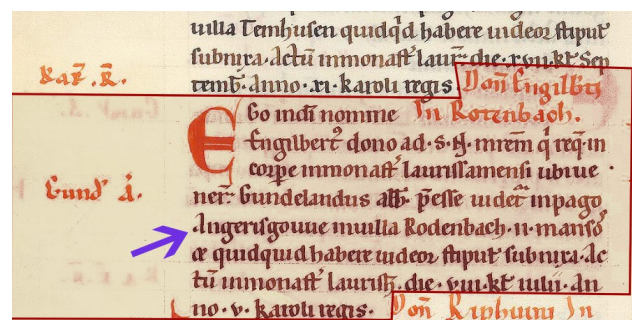 uilla Temhusen quidq̇d habere uideor stiput
subnixa. Actū inmonast̄ laur̄. die. xvii. kł. Sep
temb̄. Anno. xi. karoli regis. Don̄ Engilb̄ti
Ego indī nomine In Rotenbach.
Engilbert᷒ dono ad. S. N. mr̄em q̇ req̇. in
corp̄e inmonast̄ laurissamensi ubi ue
ner̄. Gundelandus abb̄. p̄esse uidet᷒ inpago
Angerisgouue inuilla Rodenbach. ii. mansos
&amp; quidquid habere uideor stiput subnixa. Ac
tū inmonast̄ laurish̄. die. viii. kł iulii. An
no. v. karoli regis. Don̄ Riphuuini In
Gund' A.